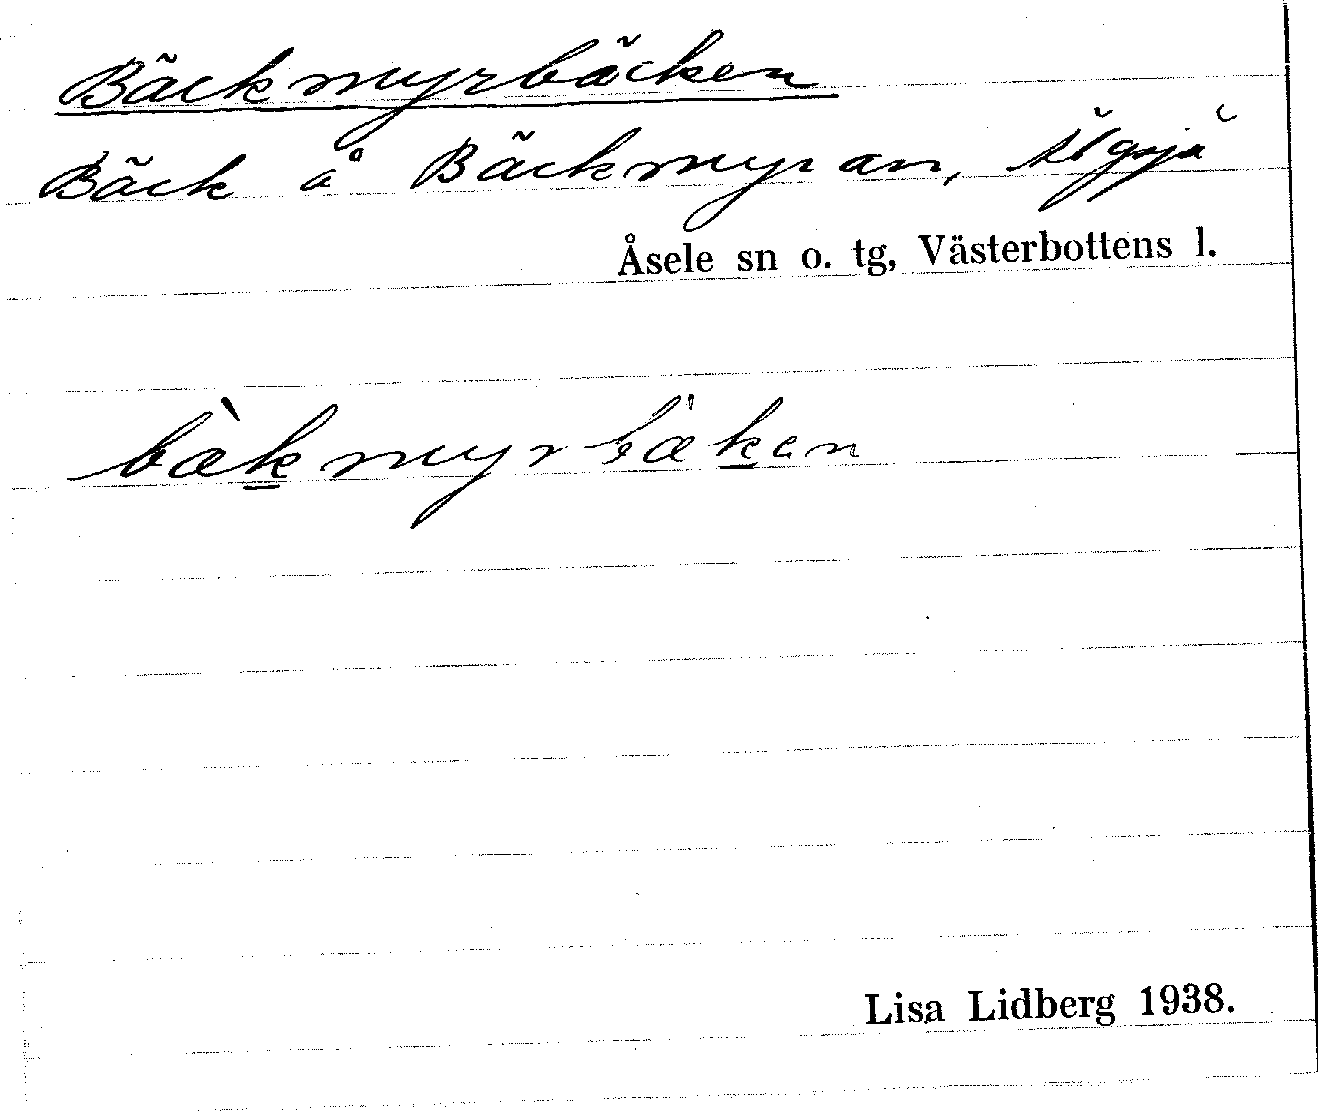 Bäckmyrbäcken
Bäck å Bäckmyran, Älgsjö
Åsele sn o. tg, Västerbottens l.
bæ̀kmyrbæken
Lisa Lidberg 1938.